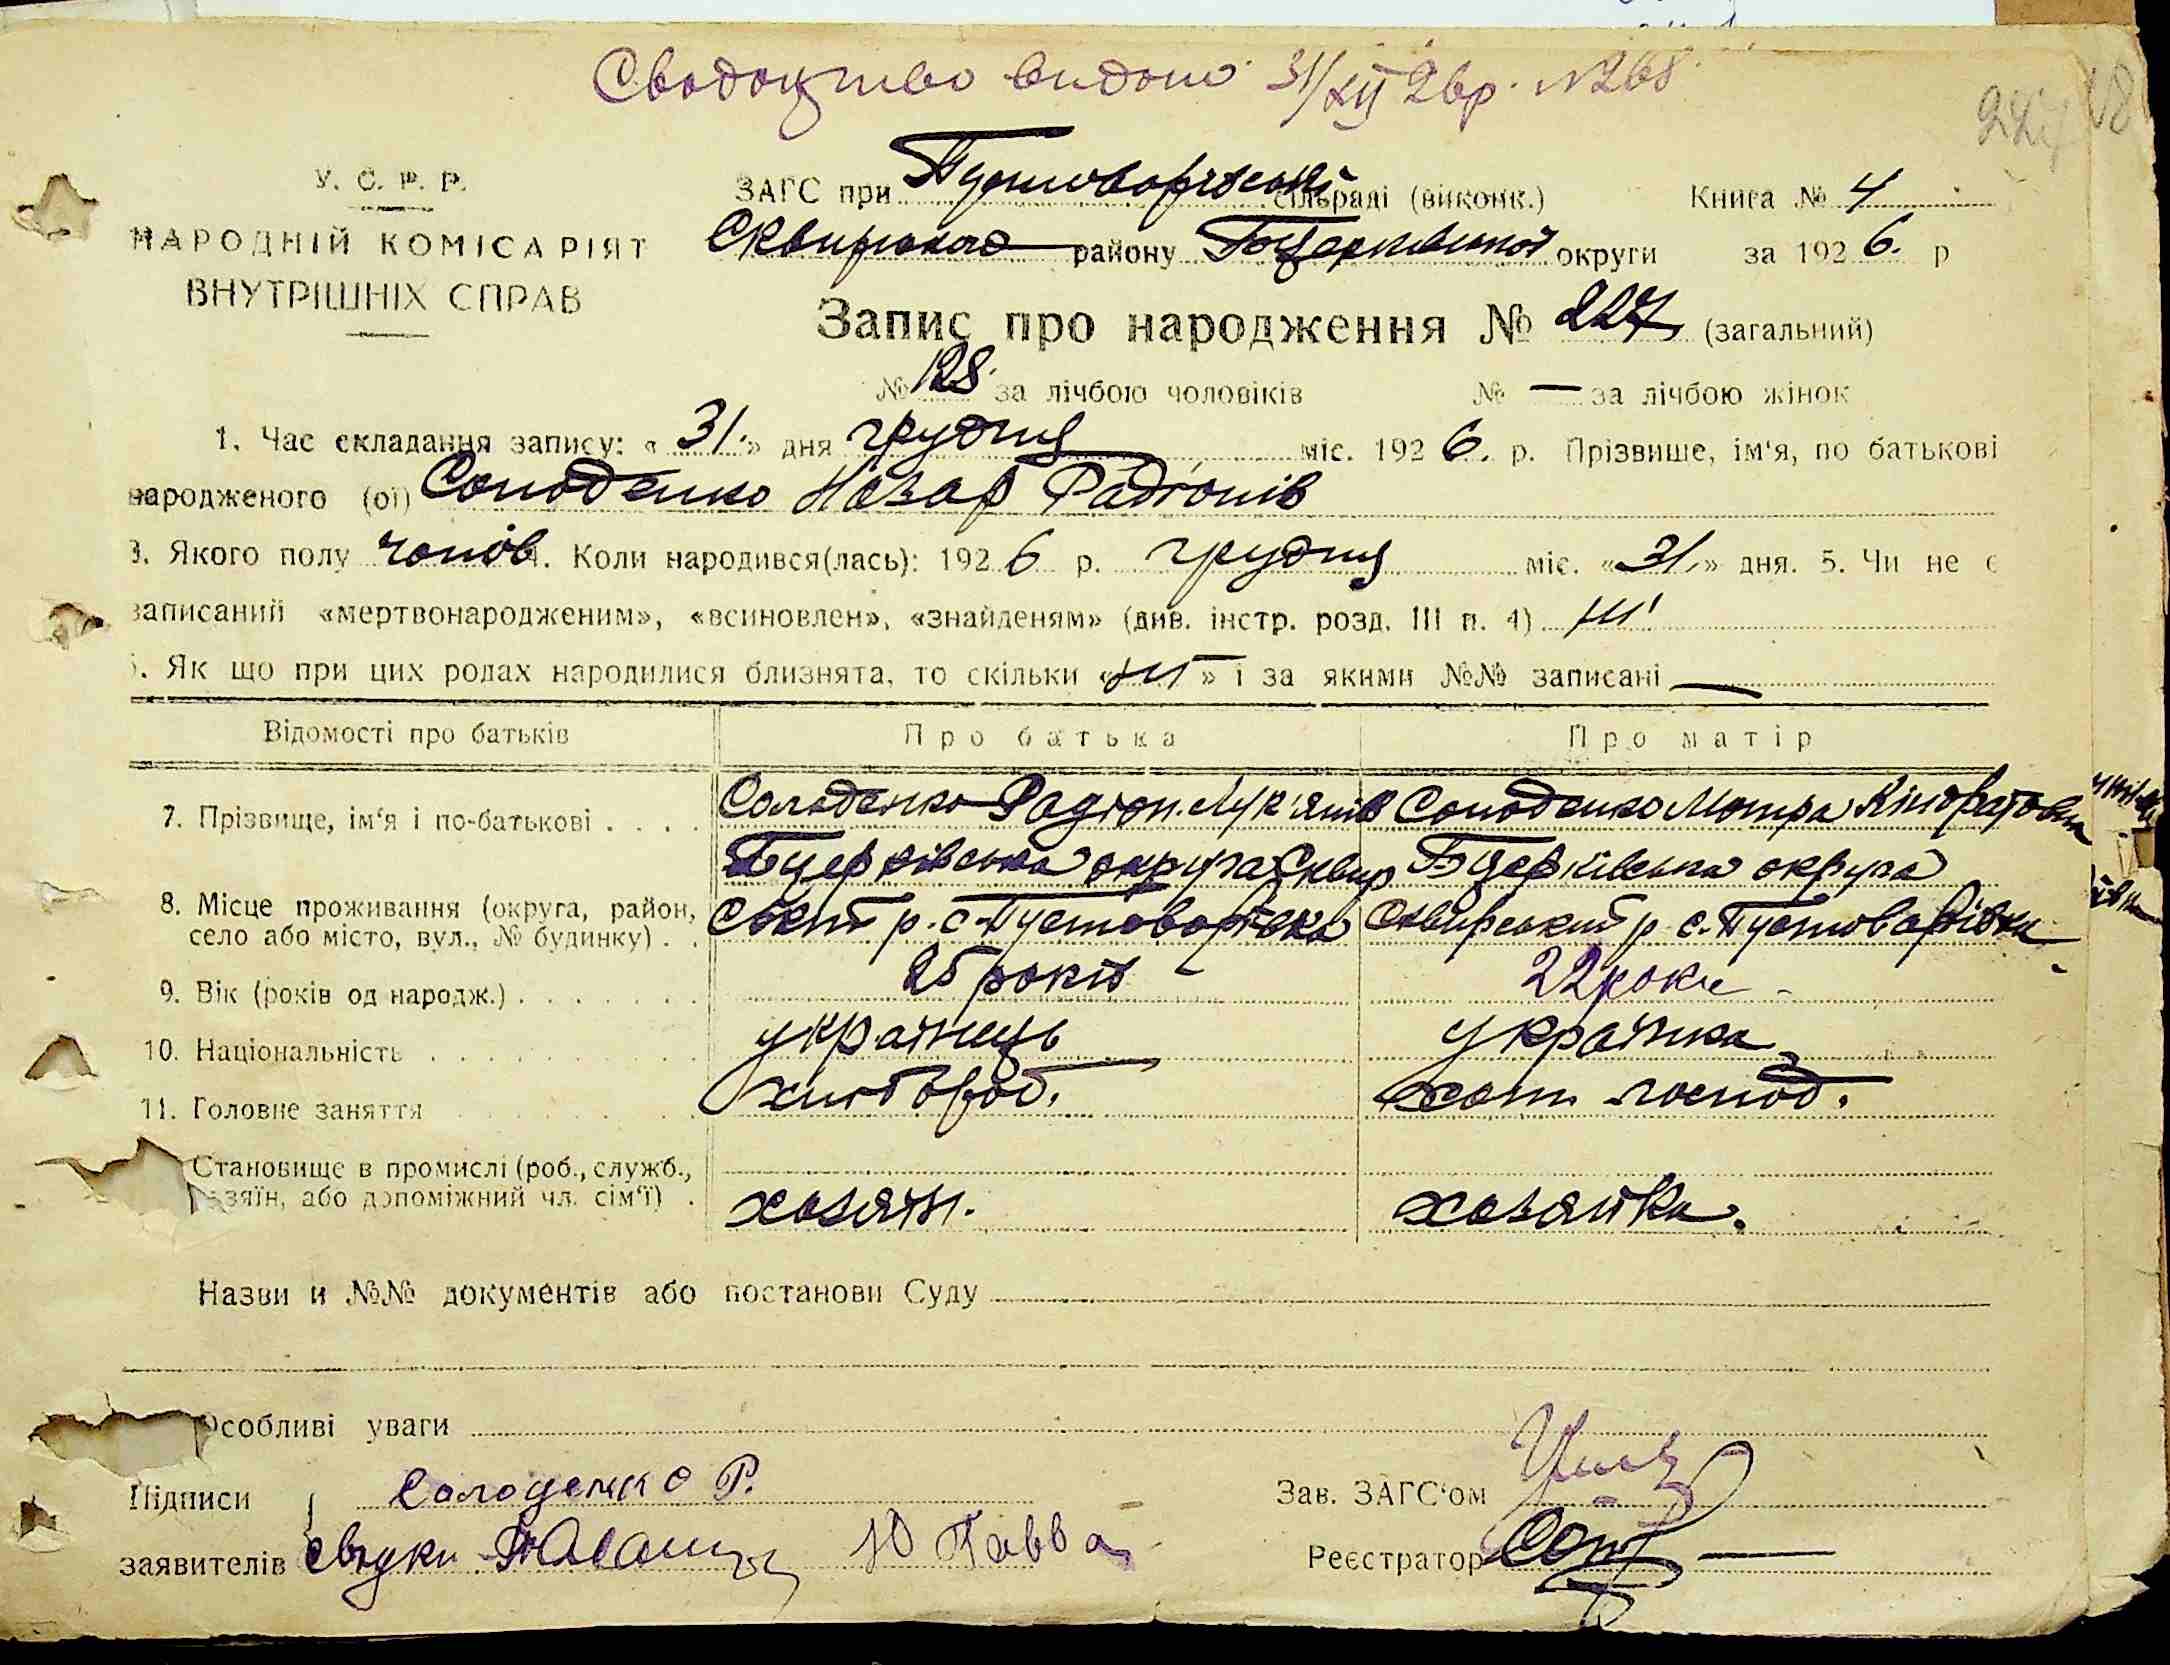 Свидоцтво видано 31/XII 26р. №268
227
У. С. Р. Р.
НАРОДНІЙ КОМІСАРІЯТ
ВНУТРІШНІХ СПРАВ
ЗАГС при Пустоварівській сільраді (виконк.) Книга № 4
Сквирського району Бцерківської округи за 1926. р
Запис про народження № 227 (загальний)
№ 128. за лічбою чоловіків № — за лічбою жінок
1. Час складання запису: «31.» дня грудня міс. 1926. р. Прізвище, ім'я, по батькові
народженого (ої) Солоденко Назар Радіонів
3. Якого полу чолов. 4. Коли народився(лась): 1926 р. грудня міс. «31.» дня. 5. Чи не є
записаний «мертвонародженим», «всиновлен», «знайденям» (див. інстр. розд. III п. 4) ні
6. Як що при цих родах народилися близнята, то скільки «ні» і за якими №№ записані —
Відомості про батьків Про батька Про матір
7. Прізвище, ім'я і по-батькові . . . . Солоденко Радіон Лук'янів Солоденко Мотра Кіндратовна
Бцерківська округа Сквир Бцерківська округа
8. Місце проживання (округа, район, ський р. с. Пустоварівка Сквирський р с. Пустоварівка
село або місто, вул., № будинку) . .
9. Вік (років од народж.) . . . . . . . 25 років 22 роки
10. Національність . . . . . . . . . українець українка
11. Головне заняття . . . . . . . . хлібород. хатн господ.
Становище в промислі (роб., служб.,
хазяїн, або допоміжний чл. сім'ї) . хозяїн. хозяйка.
Назви и №№ документів або постанови Суду
Особливі уваги
Підписи Солоденко Р. Зав. ЗАГС'ом
заявителів свідки Ю Гавва Реєстратор